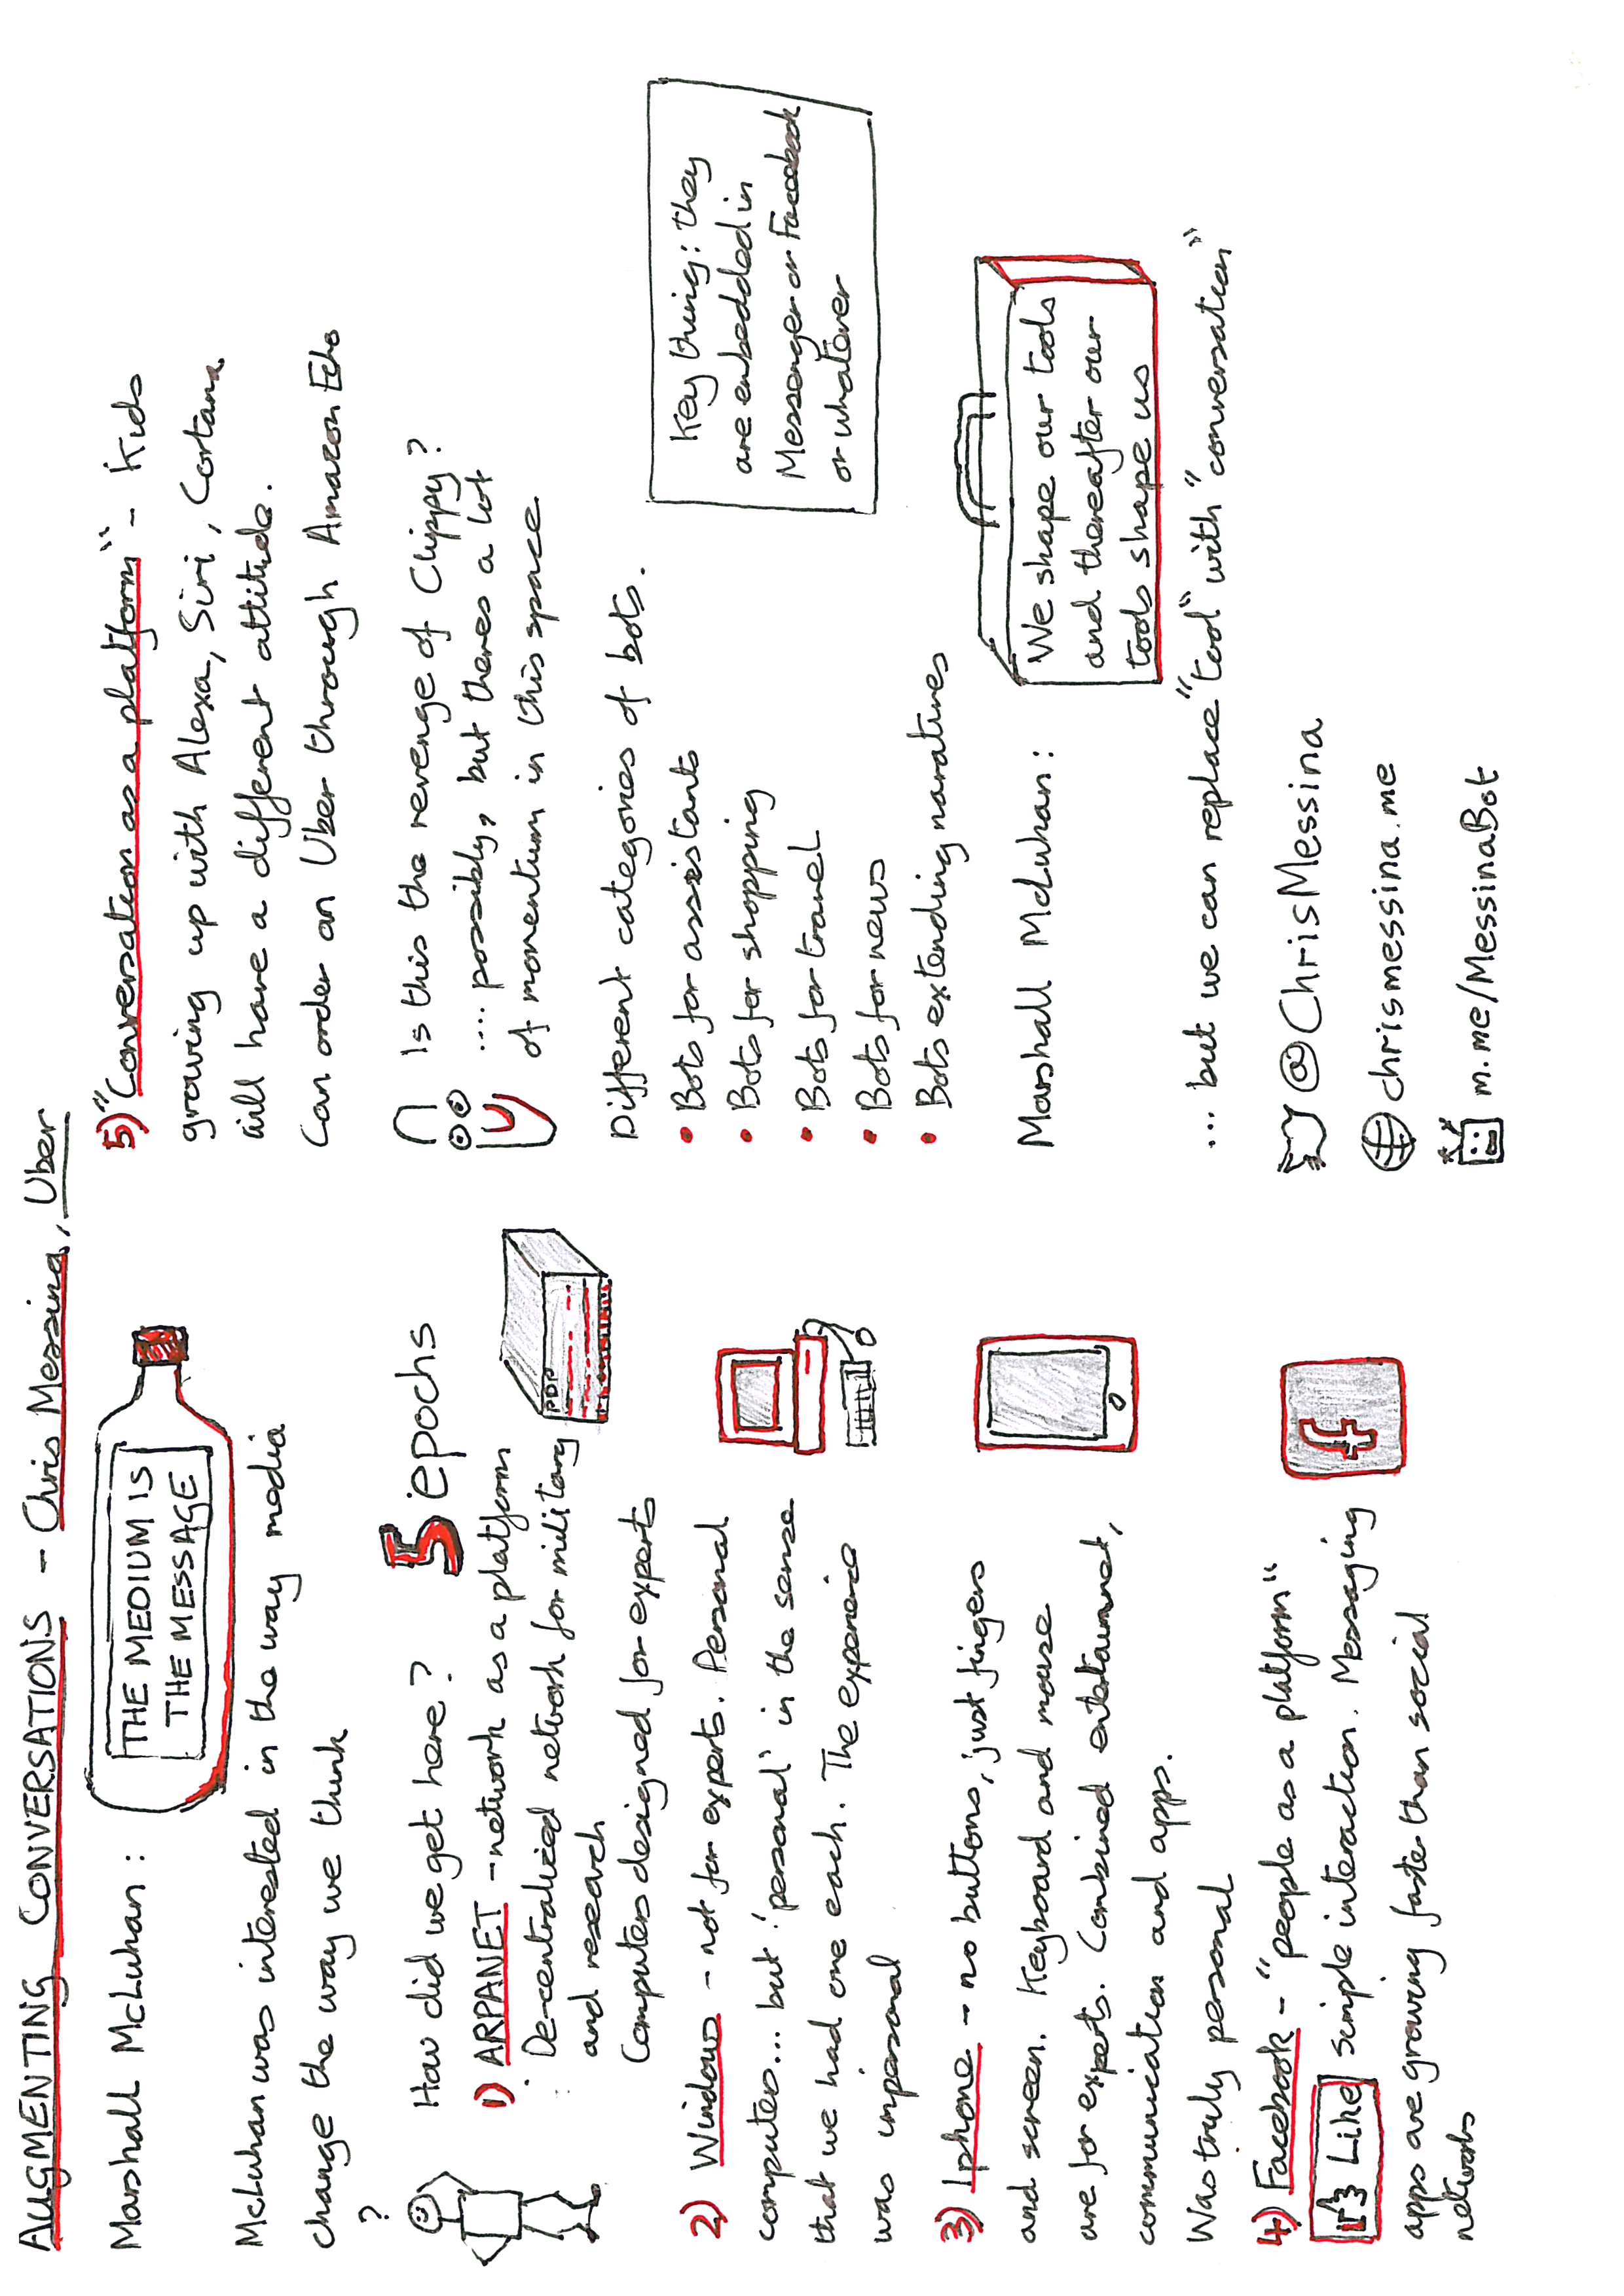 AUGMENTING CONVERSATIONS - Chris Messina, Uber
Marshall McLuhan :
THE MEDIUM IS
THE MESSAGE
McLuhan was interested in the way media
change the way we think
?
How did we get here ?
5 epochs
1) ARPANET - network as a platform
De-centralized network for military
and research
Computers designed for experts
PDP
2) Windows - not for experts. Personal
computer... but 'personal' in the sense
that we had one each. The experience
was impersonal
3) Iphone - no buttons, just fingers
and screen. Keyboard and mouse
are for experts. Combined entertainment,
communication and apps.
Was truly personal
4) Facebook - "people as a platform"
Like simple interaction. Messaging
apps are growing faster than social
networks
f
5) "Conversation as a platform" - Kids
growing up with Alexa, Siri, Cortana
will have a different attitude.
Can order an Uber through Amazon Echo
Is this the revenge of Clippy?
.... possibly, but theres a lot
of momentum in this space
Different categories of bots.
• Bots for assistants
• Bots for shopping
• Bots for travel
• Bots for news
• Bots extending naratives
Key thing: they
are embedded in
Messenger or Facebook
or whatever
Marshall McLuhan :
We shape our tools
and thereafter our
tools shape us
... but we can replace "tool" with "conversation"
@ChrisMessina
chrismessina.me
m.me/MessinaBot